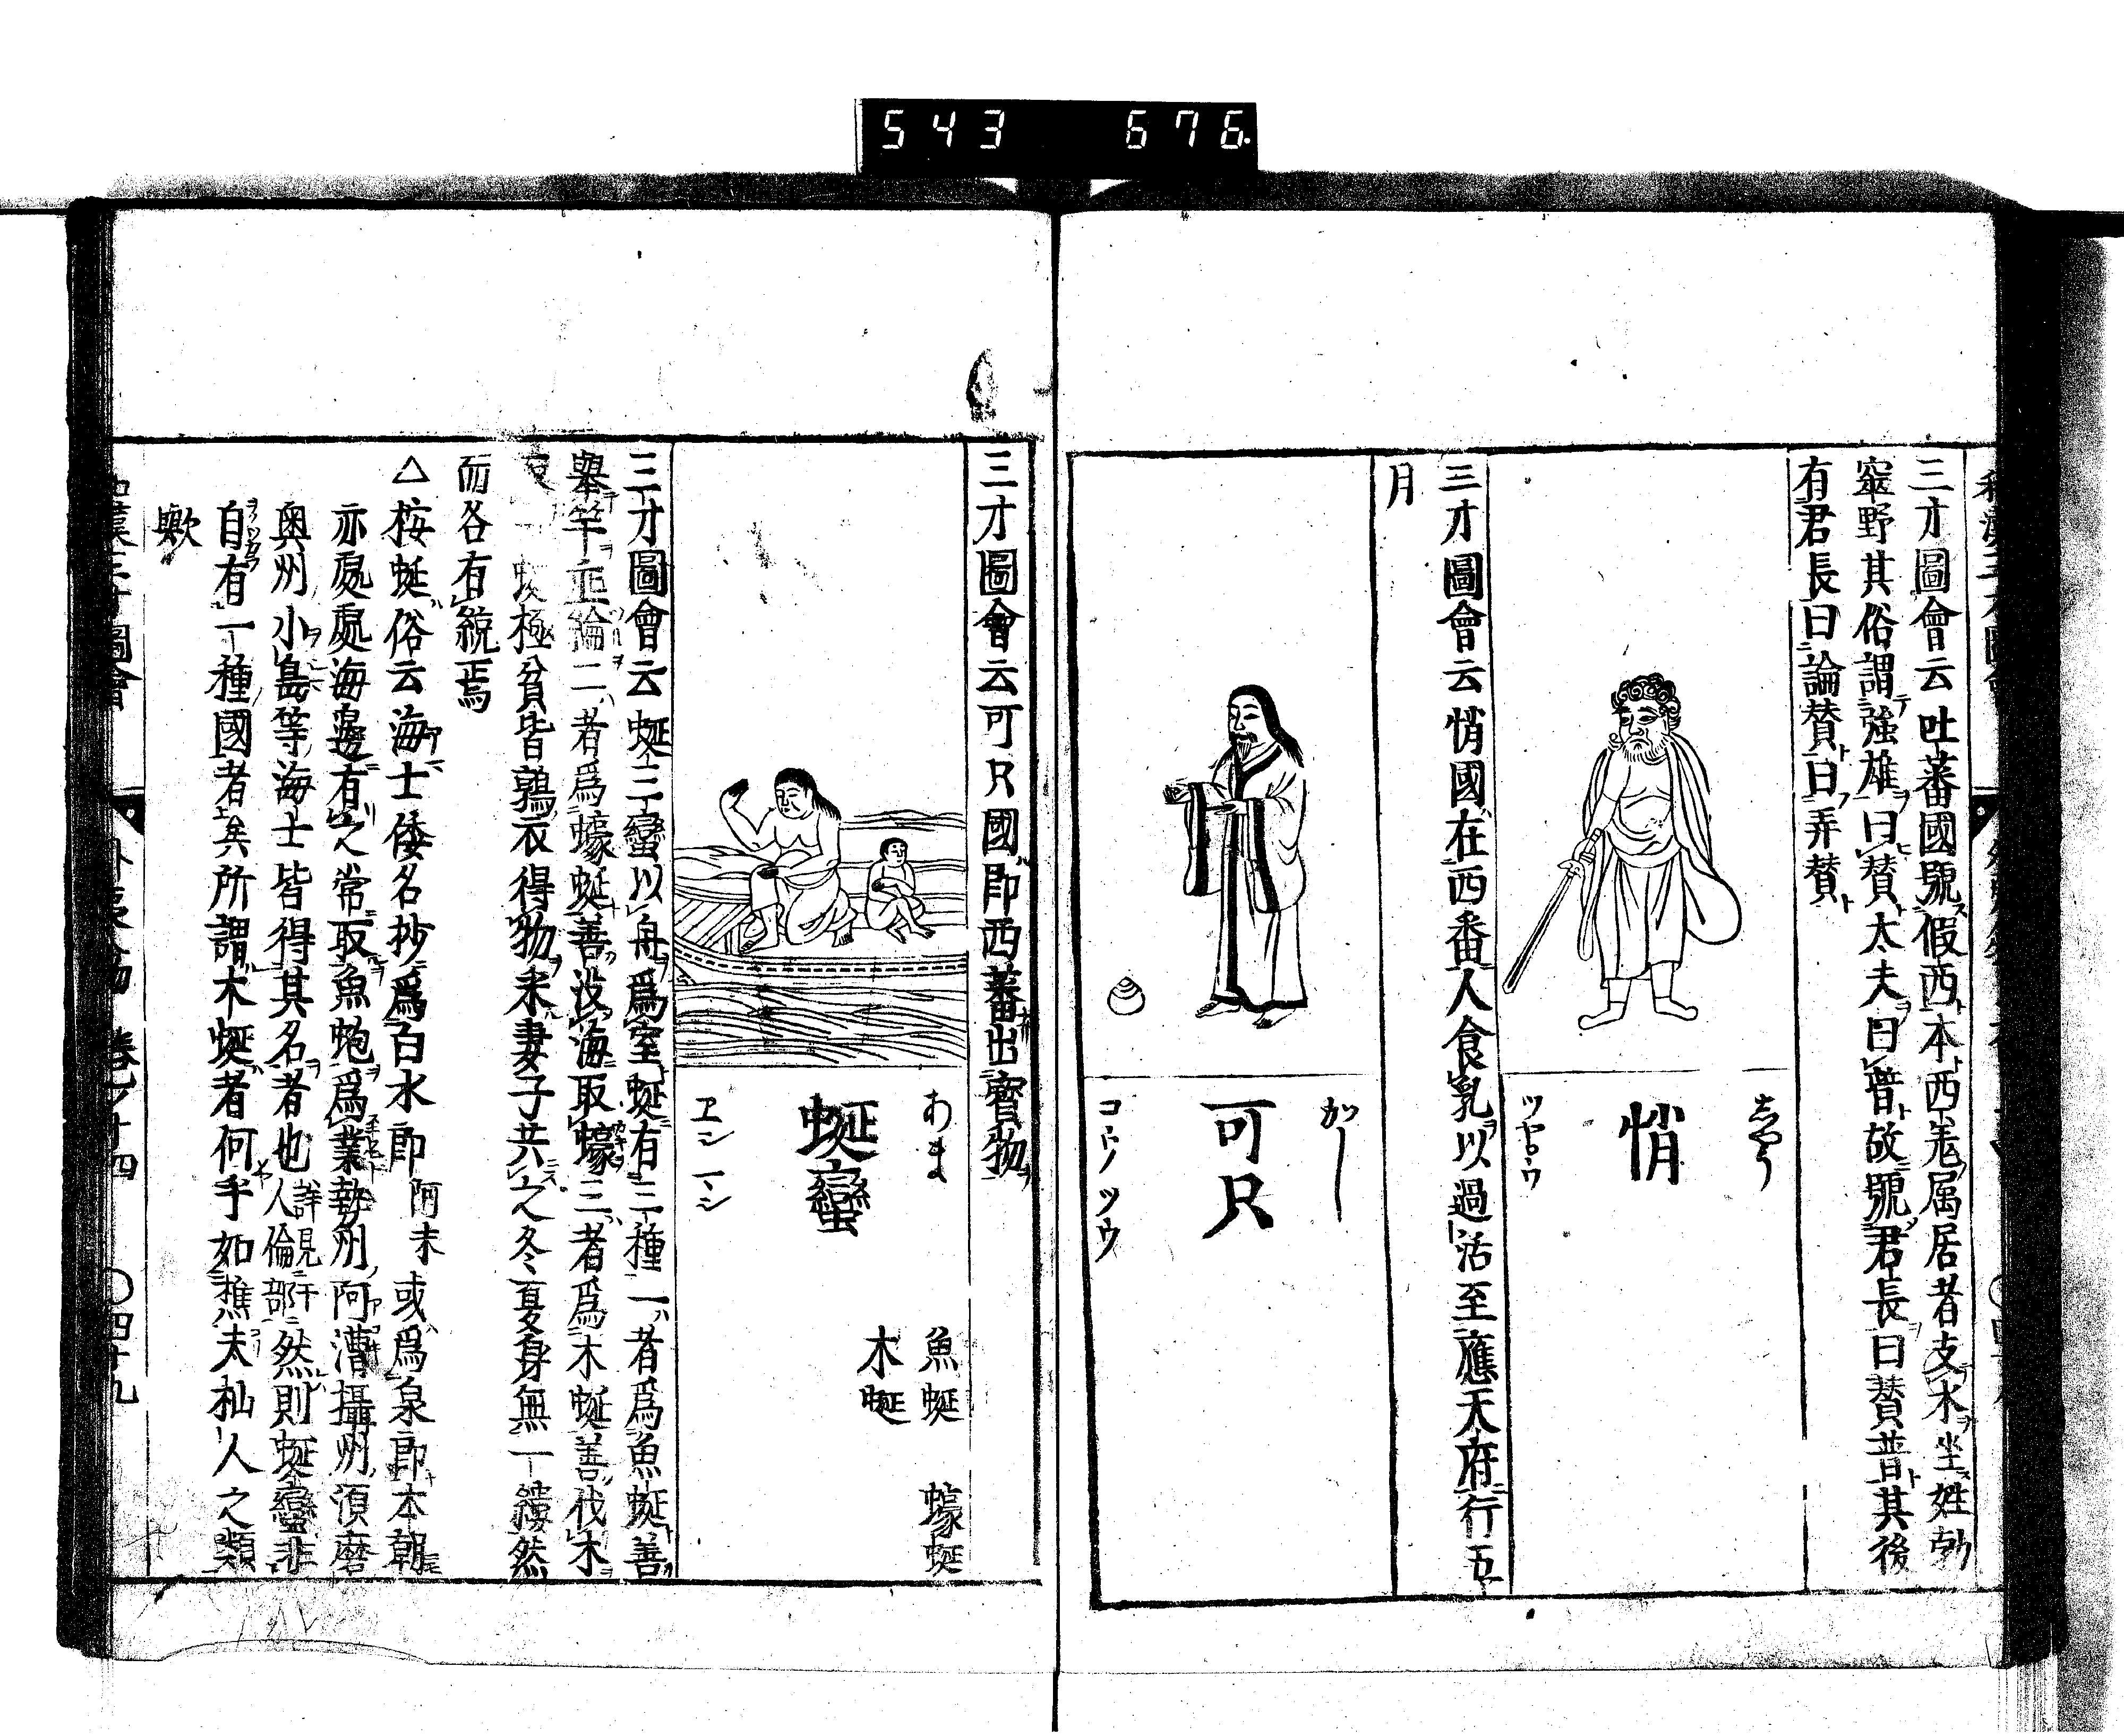 543 676
三才圖會云吐蕃國號假西本西羌属居者支水坐姓勃
窣野其俗謂強雄曰賛丈夫曰普故號君長曰賛普其後
有君長曰論賛曰弄賛
悄
ツヤ○ウ
三才圖會云悄國在西番人食乳以過活至應天府行五
月
可只
三才圖會云可只國即西蕃出寳物
あま
蜒蠻
魚蜒
蠔蜒
木蜒
三才圖會云蜒三蠻以舟爲室蜒有三種一者爲魚蜒善
擧竿垂綸二者爲蠔蜒善没海取蠔三者爲木蜒善伐木
極貧皆鶉衣得物釆妻子共之冬夏身無一縷然
而各有統焉
△按蜒俗云海士倭名抄爲白水郎 阿末 或爲泉郎本朝
亦處處海邊有之常取魚蚫爲業勢州阿漕攝州須磨
奥州小島等海士皆得其名者也 詳見于人倫部 然則蜒蠻非
自有一種國者矣所謂木蜒者何乎如樵夫杣人之類
歟
圖會
卷十四
四十九